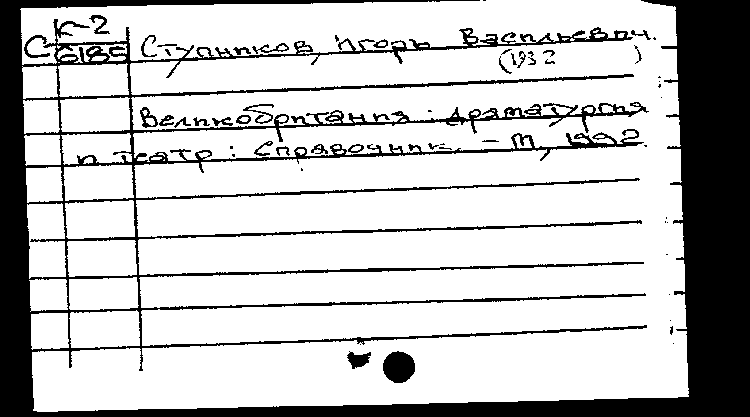 К-2
С 6185 Ступников, Игорь Васильевич.
(1932 )
Великобритания : драматургия
и театр : Справочник. – М, 1992.